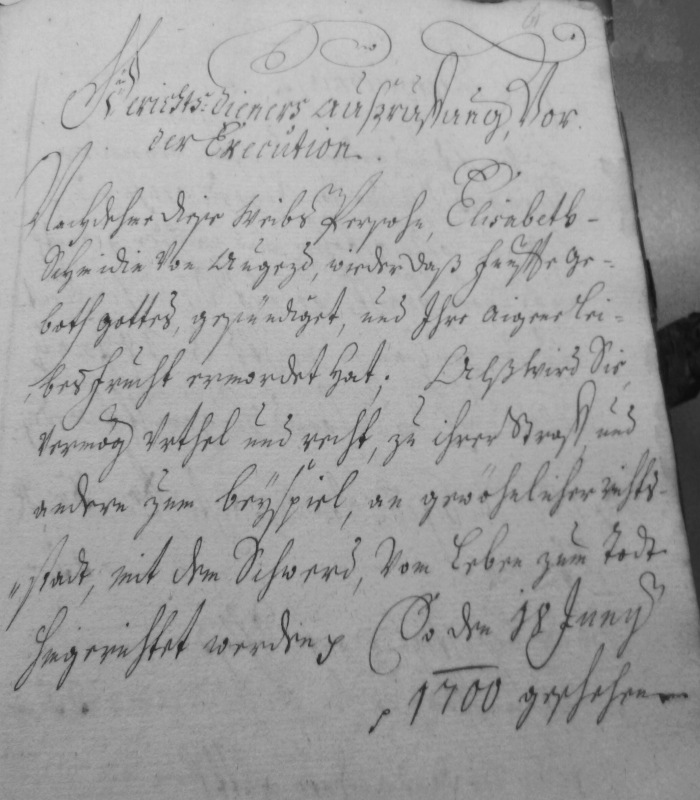 Gerichts-dieners außruffung, Vor
der Execution.
Nachdehme diese Weibs Persohn, Elisabeth-
Schmidin Von Augezd, wieder daß funffte ge-
both gottes, gesündiget, und Ihre aigene Lei-
bes frucht ermordet hat; Alß wird Sie
Vermög Vrthel und recht, zu ihrer Straff, und
andern zum beyspiel, an gewöhnlicher richt-
stadt, mit dem Schwerd, Vom Leben zum Todt
hingerichtet werden So den 18 Juny
1700 geschehen